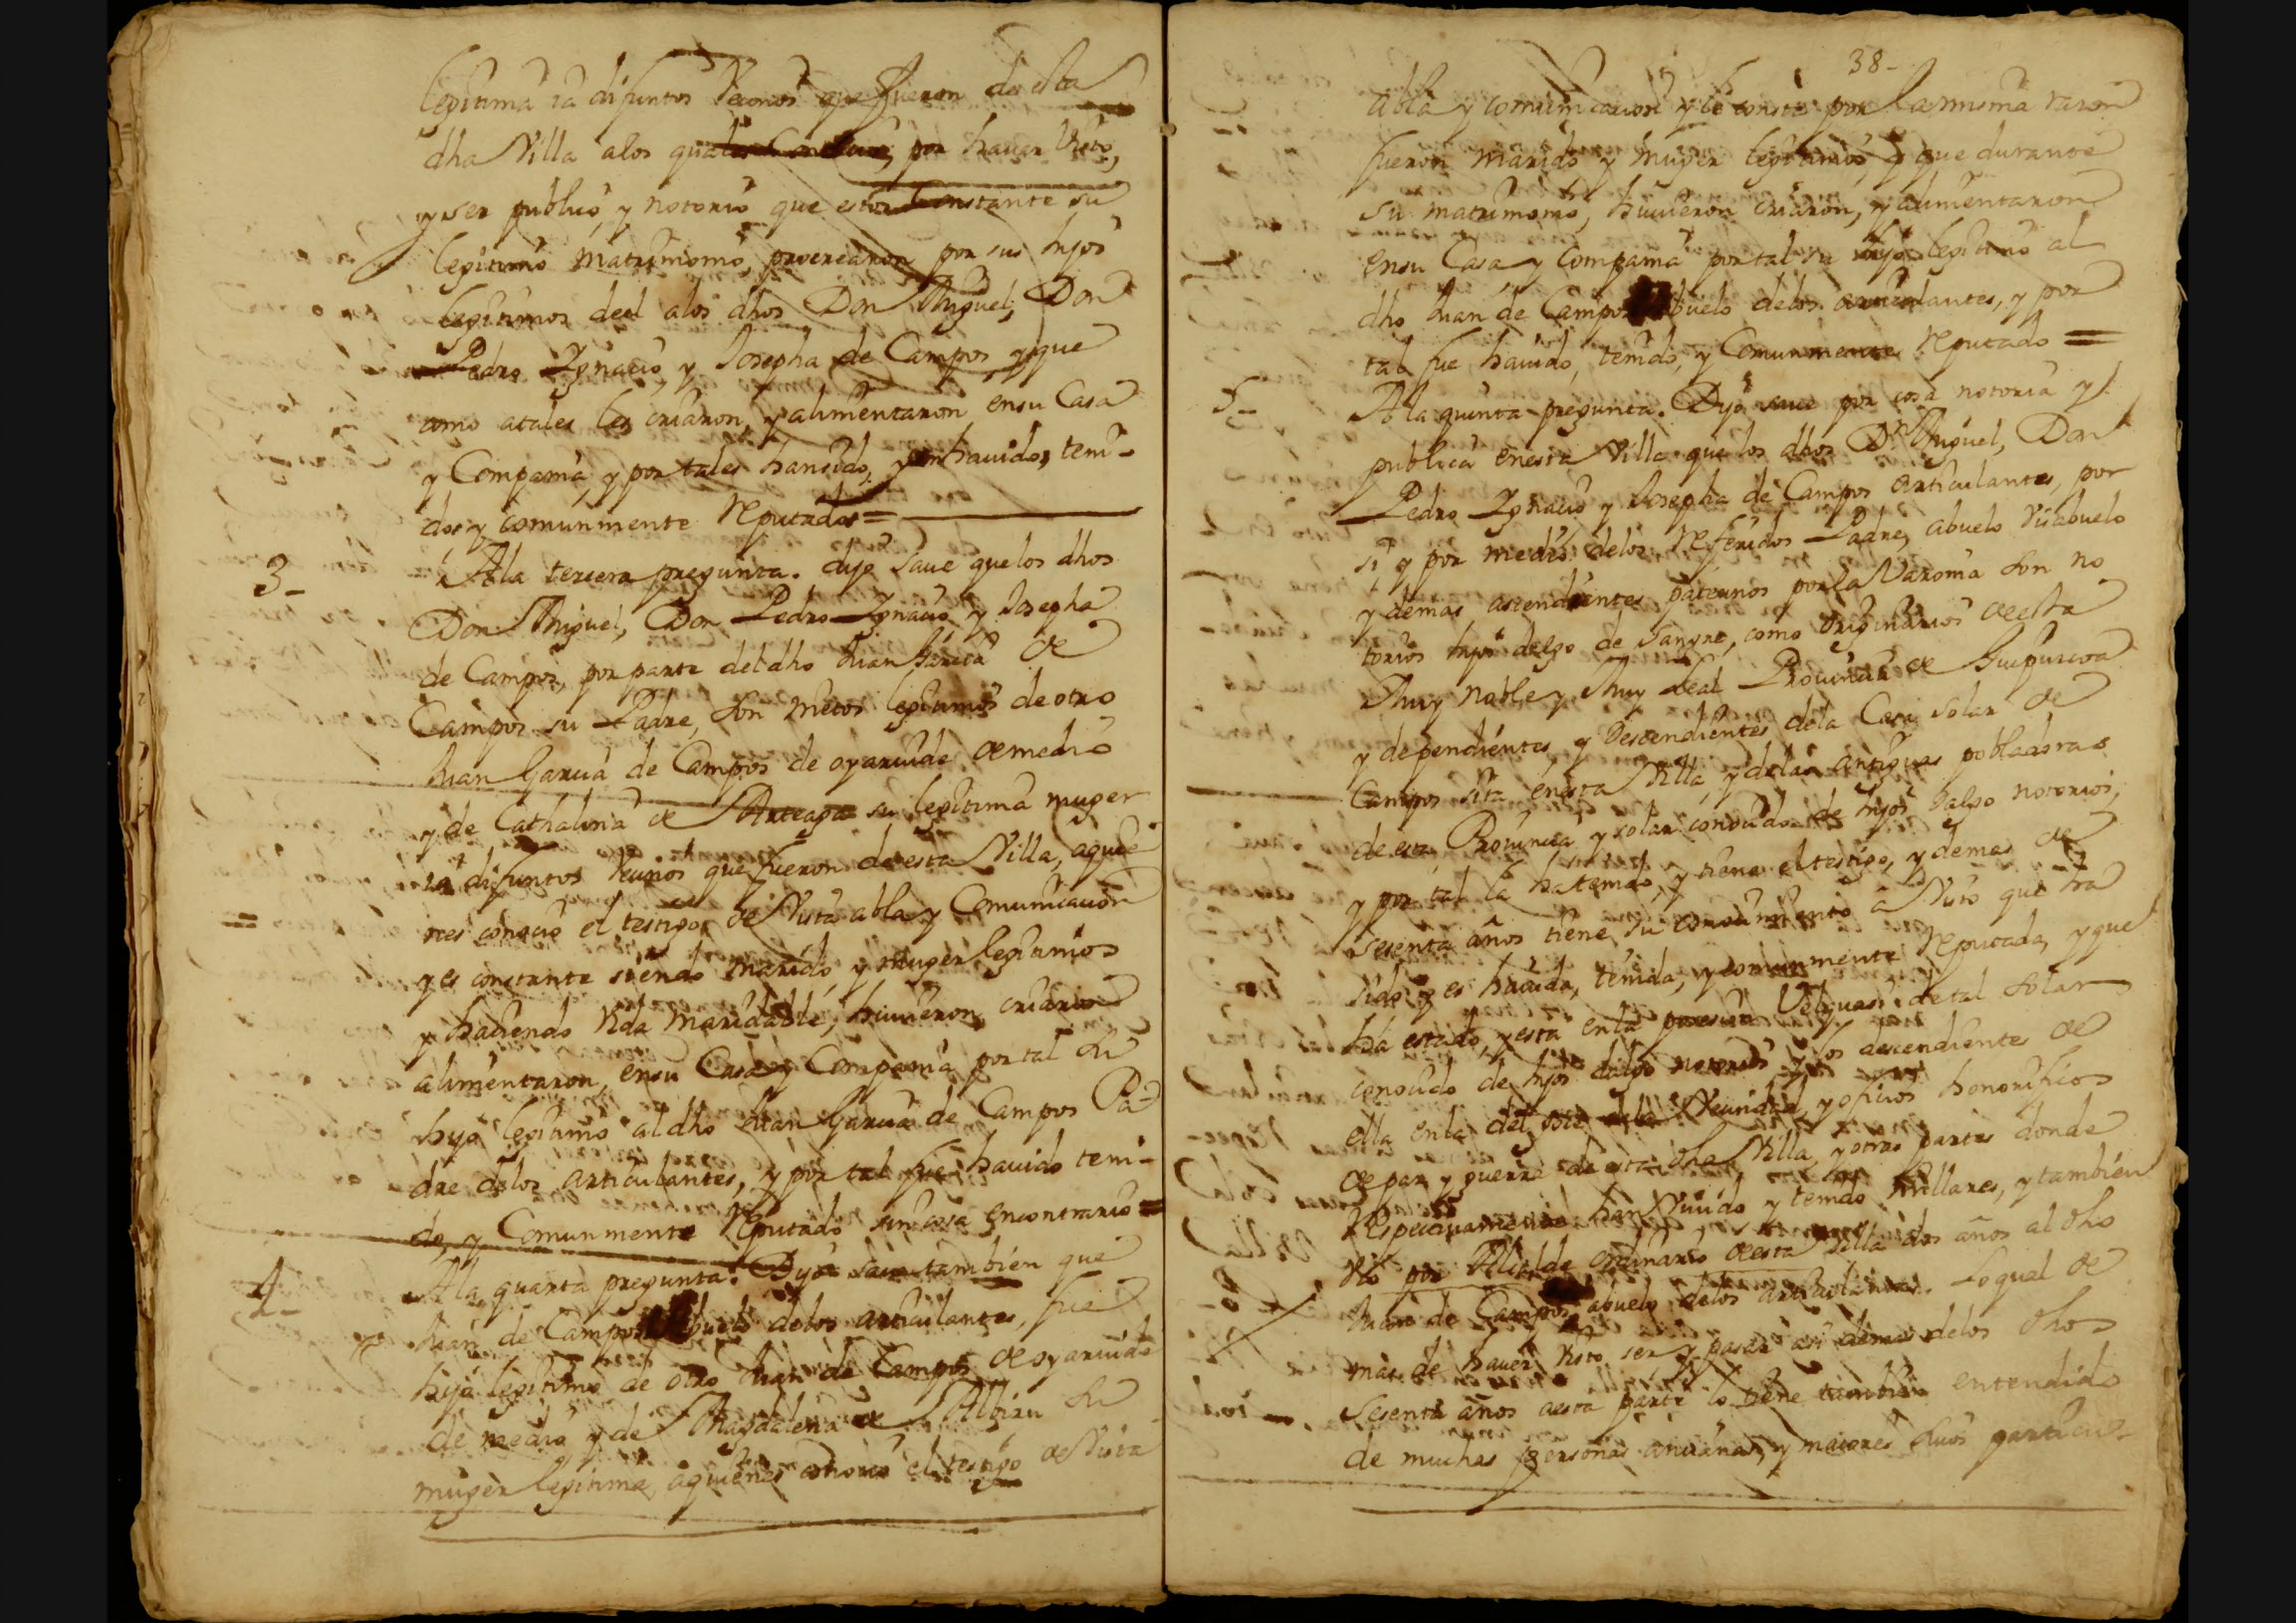 legitima ia difuntos Vecinos que fueron de esta
dha Villa alos quales Conocio, por hauer Visto,
y ser publico y notorio que estos Constante su
legitimo Matrimonio, procrearon por sus hijos
legitimos deel alos dhos Don Miguel, Don
Pedro Ygnacio, y Josepha de Campos, y que
como atales los criaron, y alimentaron ensu Casa
y Compania, y por tales hansido, y son hauidos, teni-
dos y comunmente Reputados=
3-
Ala tercera pregunta. dijo Saue quelos dhos
Don Miguel, Don Pedro Ygnacio, y Josepha
de Campos, por parte del dho Juan Garcia de
Campos su Padre, son nietos legitimos de otro
Juan Garcia de Campos de oyaruide de medio
y de Cathalina de Arteaga su legitima muger
ia difuntos Vecinos que fueron de esta Villa, aquie
nes conocio el testigo, de Vista abla y Comunicacion
y es constante siendo marido, y muger legitimos
y haciendo Vida Maridable, huuieron, criaron
alimentaron, ensu Casa y Compania por tal su
hijo legitimo al dho Juan Garcia de Campos Pa-
dre delos articulantes, y por tal fue hauido teni-
do, y Comunmente Reputado sin cosa encontrario=
4-
Ala quarta pregunta. Dijo saue tambien que
Juan de Campos abuelo delos articulantes, fue
hijo legitimo de otro Juan de Campos de oyaruide
de medio y de Magdalena de Albizu su
muger legitima, aquienes conocio el testigo de Vista
38-
abla y comunicacion y le consta por la misma razon
fueron marido y muger legitimos, y que durante
su matrimonio, huuieron criaron, y alimentaron
ensu Casa y Compania por tal su hijo legitimo al
dho Juan de Campos abuelo delos articulantes, y por
tal fue hauido, tenido, y Comunmente Reputado =
5-
Ala quinta pregunta. Dijo saue por cosa notoria y
publica enesta Villa que los dhos Dn Miguel, Don
Pedro Ygnacio y Josepha de Campos articulantes, por
si y por medio delos Referidos Padre, abuelo Visabuelo
y demas ascendientes paternos por la Varonia son no
torios hijos dalgo de Sangre, como Originarios de esta
Muy noble y Muy Leal Prouincia de Guipuzcoa
y dependientes, y Descendientes dela Casa Solar de
Campos sita enesta Villa, y delas antiguas pobladoras
de esta Prouincia y solar conocido de hijos dalgo notorios,
y por tal la ha tenido, y tiene el testigo, y demas de
sesenta años tiene su conocimiento a Visto que ha
sido y es hauida, tenida, y comunmente Reputada, y que
ha estado, y esta enla posesion Velquasi de tal solar
conocido de hijos dalgo notorios y los descendientes de
ella enla del goze dela Vecindad, y oficios honorificos
de paz y guerra de esta dha Villa, y otras partes donde
Respectiuamente han Viuido y tenido millares, y tambien
Vio por Alcalde Ordinario de esta Villa dos años al dho
Juan de Campos abuelo delos articulantes. Loqual de
mas de hauer Visto ser y pasar asi demas delos dhos
Sesenta años aesta parte lo tiene tambien entendido
de muchas personas ancianas, y maiores suios particu-